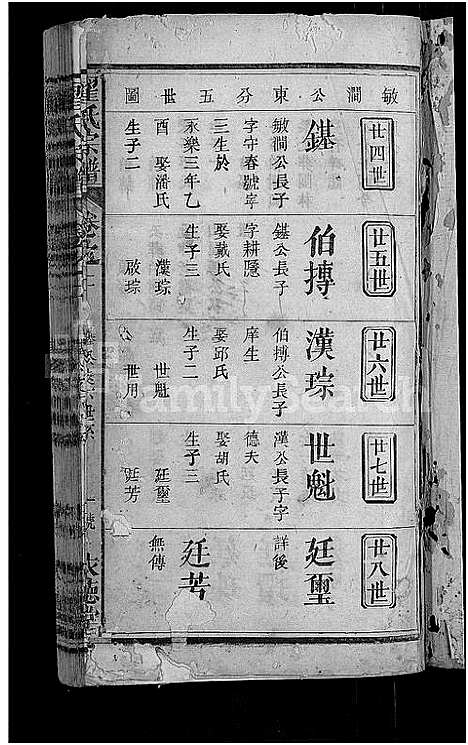 敏澗公東分五世圖
廿四世
鍖
敏澗公長子
字守春號寧
三生於
永樂三年乙
酉 娶潘氏
生子二
廿五世
伯摶
鍖公長子
字耕隱
娶戴氏
生子三
漢琮
啟琮
廿六世
漢琮
伯摶公長子
庠生
娶邱氏
生子二
世魁
世用
廿七世
世魁
漢公長子字
德夫
娶胡氏
生子三
廷璽
廷芳
廿八世
廷璽
詳後
廷芳
無傳
氏宗譜
FamilySearch